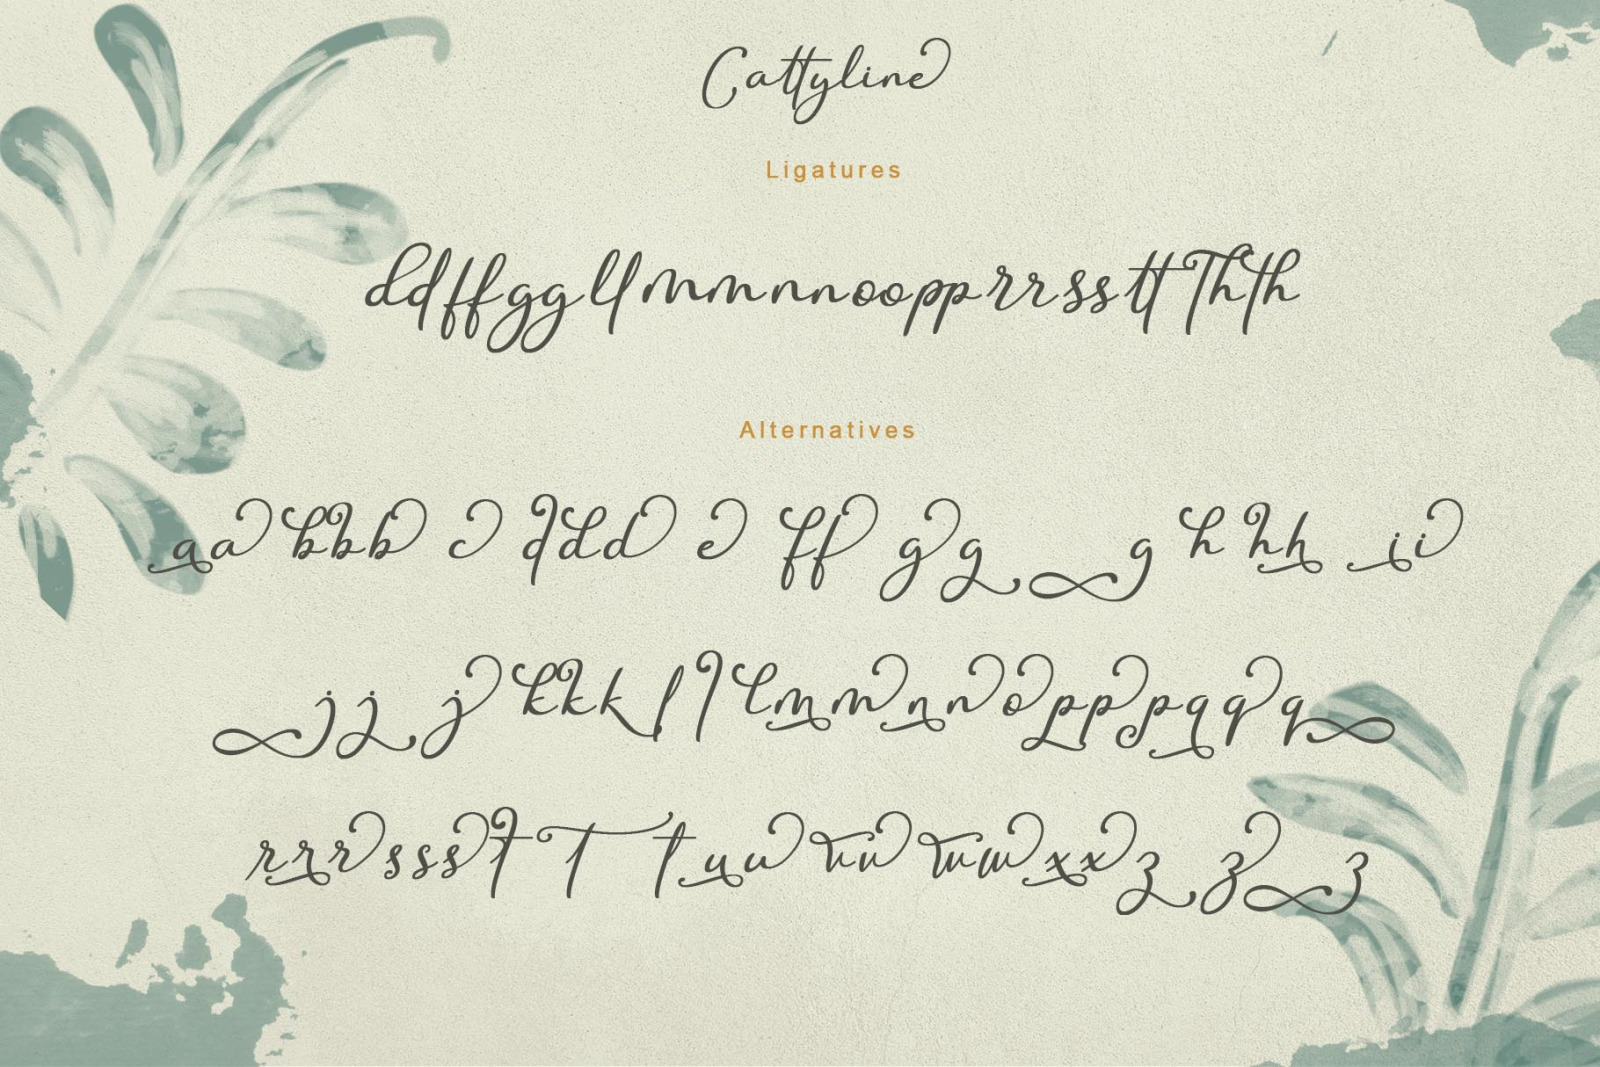 Cattyline
Ligatures
ddffggllmmnnoopprrssttThth
Alternatives
aabbbcdddeffggghhhii
jjjkkklllmmnnopppqqq
rrrssstttuuvvwwxxzzz